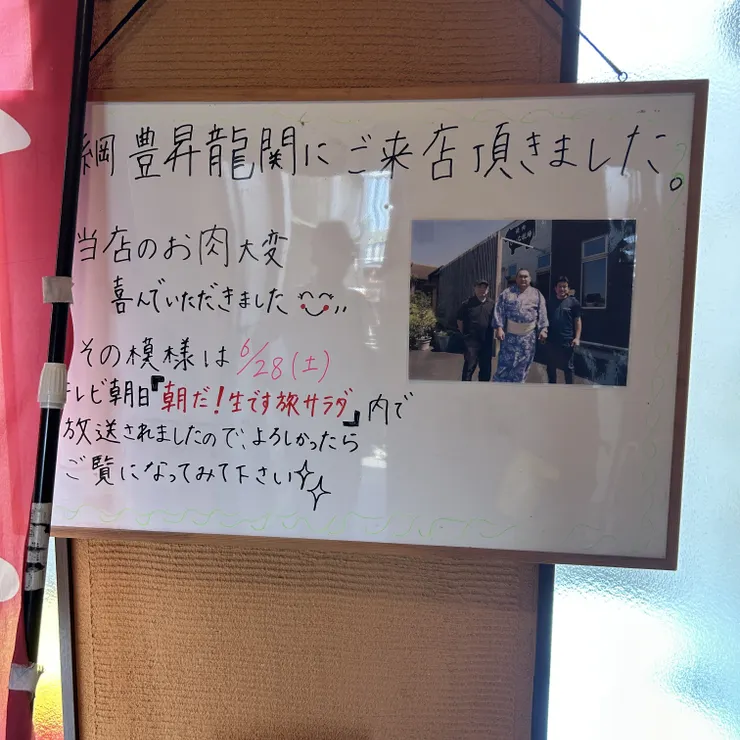 綱豊昇龍関にご来店頂きました。
当店のお肉大変
喜んでいただきました
その模様は6/28(土)
テレビ朝日『朝だ!生です旅サラダ』内で
放送されましたので、よろしかったら
ご覧になってみて下さい